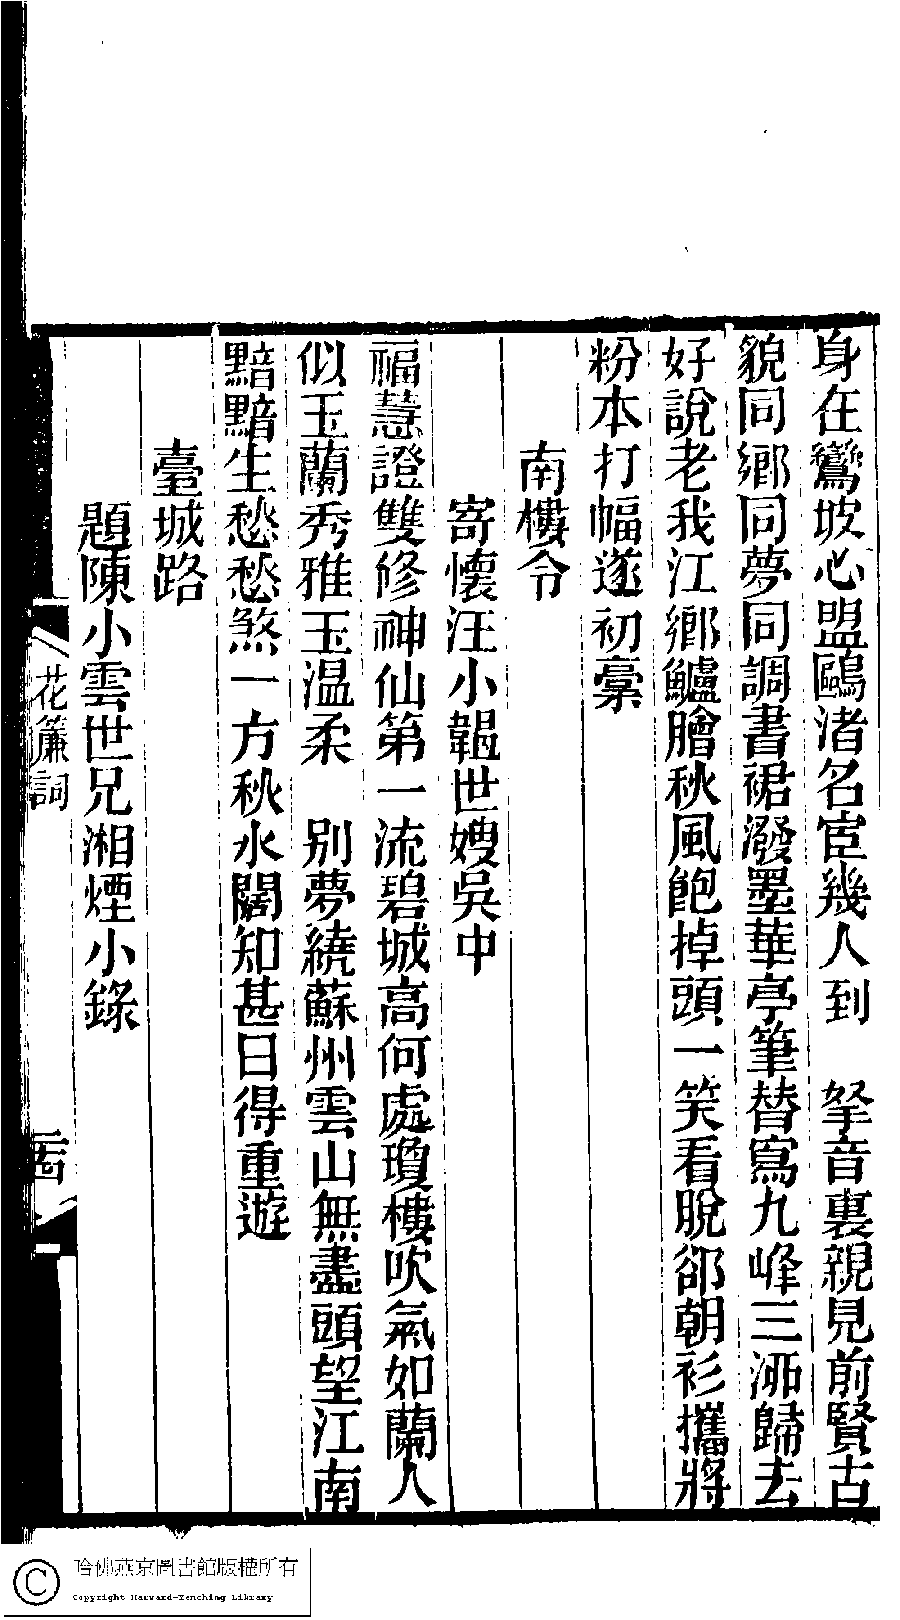 身在鸞坡心盟鷗渚名宦幾人到　拏音裏親見前賢古
貌同鄉同夢同調書裙潑墨華亭筆替寫九峰三泖歸去
好說老我江鄉鱸膾秋風飽掉頭一笑看脫卻朝衫攜將
粉本打幅遂初稾
南樓令
寄懷汪小韞世嫂吳中
福慧證雙修神仙第一流碧城高何處瓊樓吹氣如蘭人
似玉蘭秀雅玉温柔　别夢繞蘇州雲山無盡頭望江南
黯黯生愁愁煞一方秋水闊知甚日得重遊
臺城路
題陳小雲世兄湘煙小錄
花簾詞
二十四
哈佛燕京圖書館版權所有
Copyright Harvard-Yenching Library